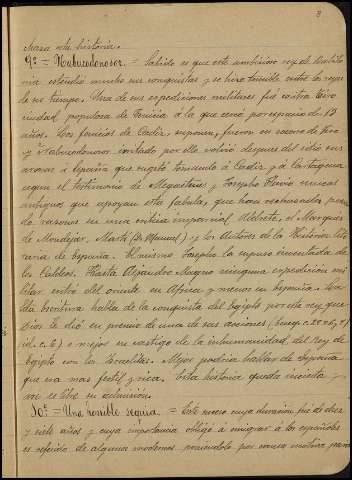 8
esta historia.
9º = Nabucodonosor. = Sabido es que este ambicioso rey de Babilo
nia extendió mucho sus conquistas y se hizo temible entre los reyes
de su tiempo. Una de sus expediciones militares fué contra Tiro
ciudad populosa de Fenicia á la que cercó por espacio de 13
años. Los fenicios de Cadiz, suponen, fueron en socorro de Tiro
y Nabucodonosor irritado por ello volvió despues del sitio sus
armas á España que sugetó tomando á Cadiz y á Cartagena
segun el testimonio de Megastenes y Josepho Flavio unicos
antiguos que apoyan esta fabula, que han rechazado
en una critica imparcial Aldrete, el Marqués
de Mondéjar, Martí (Dn Manuel) y los Autores de la Historia lite
raria de España. El mismo Josepho la supone inventada de
los Caldeos. Hasta Alejandro Magno ninguna expedicion mi
litar entró del oriente en Africa y menos en España. La
Escritura habla de la conquista del Egipto por este rey que
Dios le dió en premio de una de sus acciones
ó mejor en castigo de la inhumanidad del Rey de
Egipto con los Israelitas. Mejor podria hablar de España
que era mas fertil y rica. Esta historia queda incierta y
10º = Una horrible sequia. = Este suceso cuya duracion fué de diez
y siete años y cuya importancia obligó á emigrar á los españoles
es referido de algunos modernos poniendolo por causa motiva para